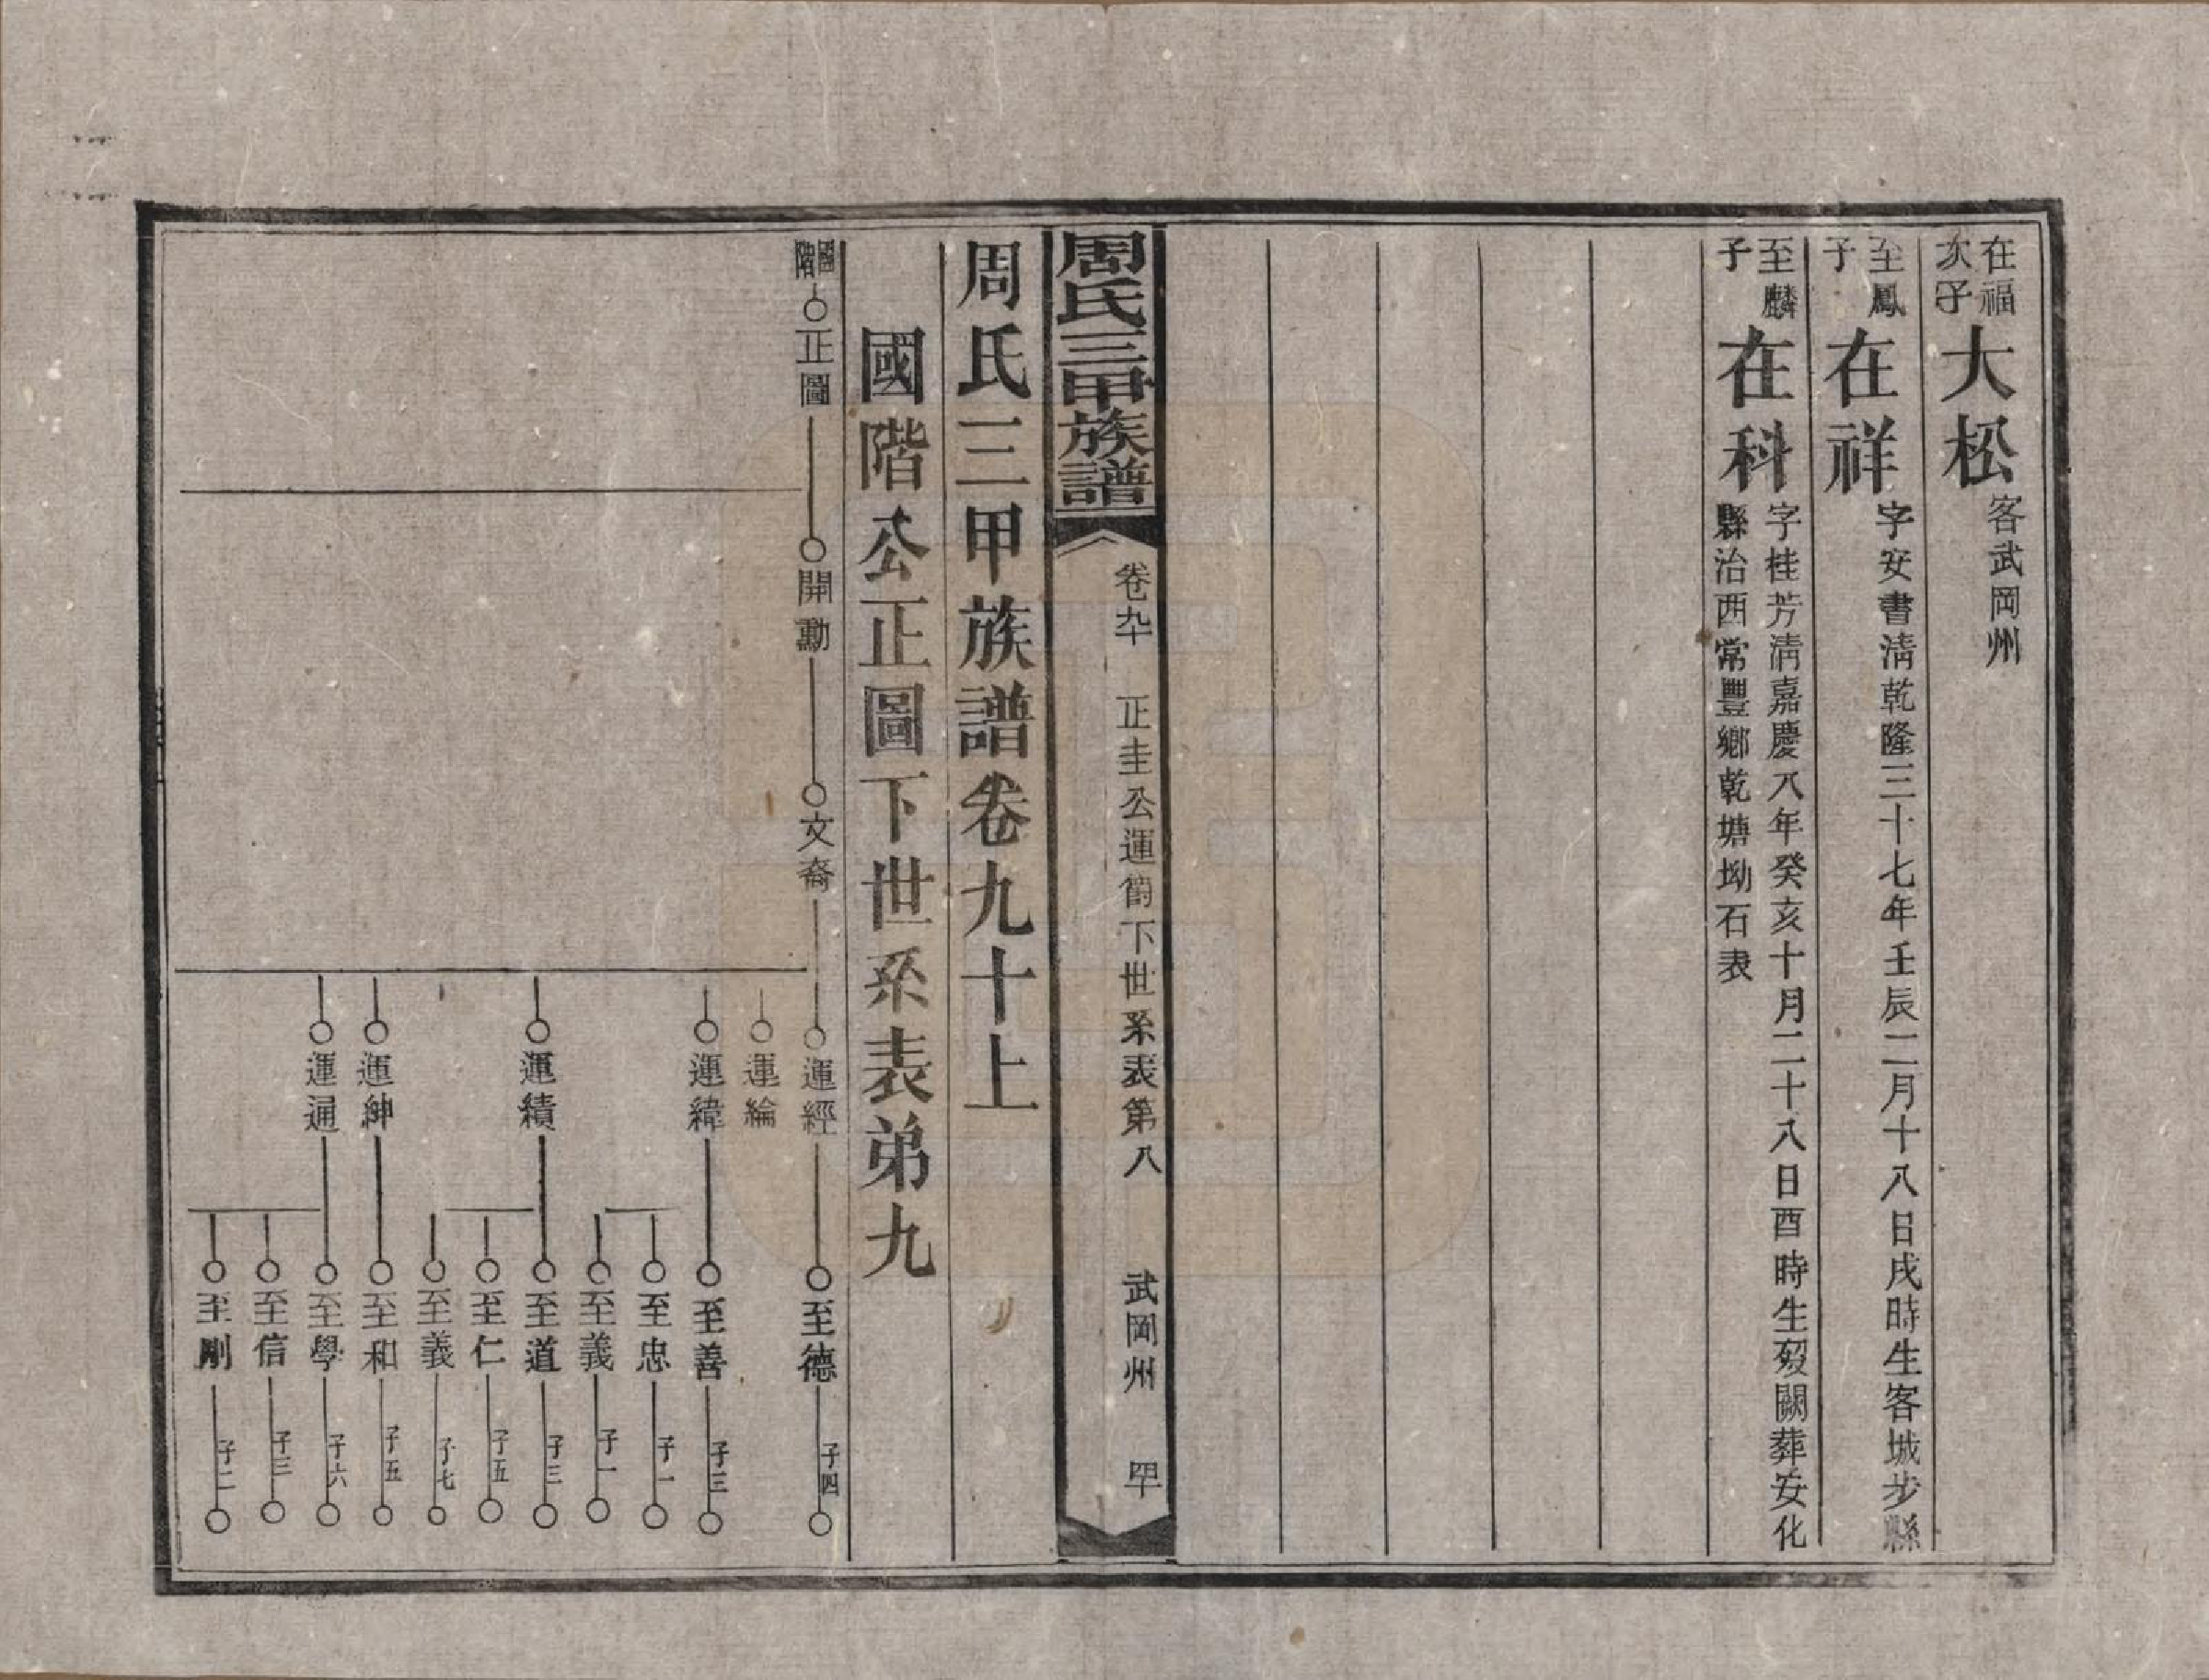 在福次子
大松
客武岡州
至鳳子
在祥
字安書清乾隆三十七年壬辰二月十八日戌時生客城步縣
至麟子
在科
字桂芳清嘉慶八年癸亥十月二十八日酉時生歿闕葬安化
縣治西常豐鄉乾塘坳石表
周氏三甲族譜
卷九十
正圭公運籌下世系表第八
武岡州
四十
周氏三甲族譜卷九十上
國階公正圖下世系表弟九
國階 正圖 開勳 文裔 運經 至德 子四
運綸
運緯 至善 子三
至忠 子一
至義 子一
運績 至道 子三
至仁 子五
至義 子七
運紳 至和 子五
運通 至學 子六
至信 子三
至剛 子二